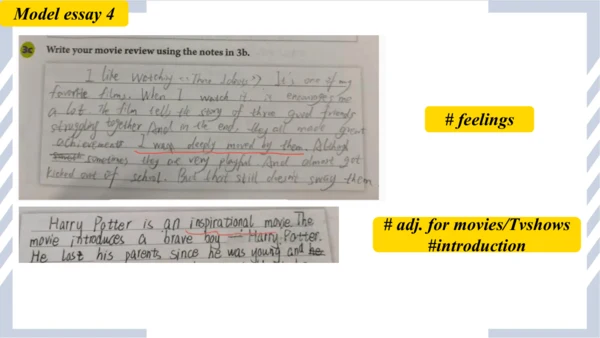 Model essay 4
3c Write your movie review using the notes in 3b.
I like Watching <<Three Idiots>> It's one of my
favorite films. When I watch it is encourages me
a lot The film tells the story of three good friends
struggling together And in the end, they all made great
achievements I was deeply moved by them. Although
sometimes they are very playful And almost got
kicked out of school. But that still doesn't them
# feelings
Harry Potter is an inspirational movie The
movie introduces a brave boy — Harry Potter.
He lost his parents since he was young and he
# adj. for movies/Tvshows
#introduction